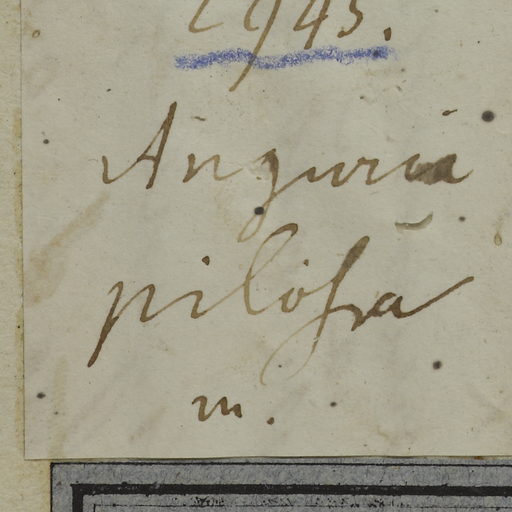 2943.
Anguria
pilosa
m.